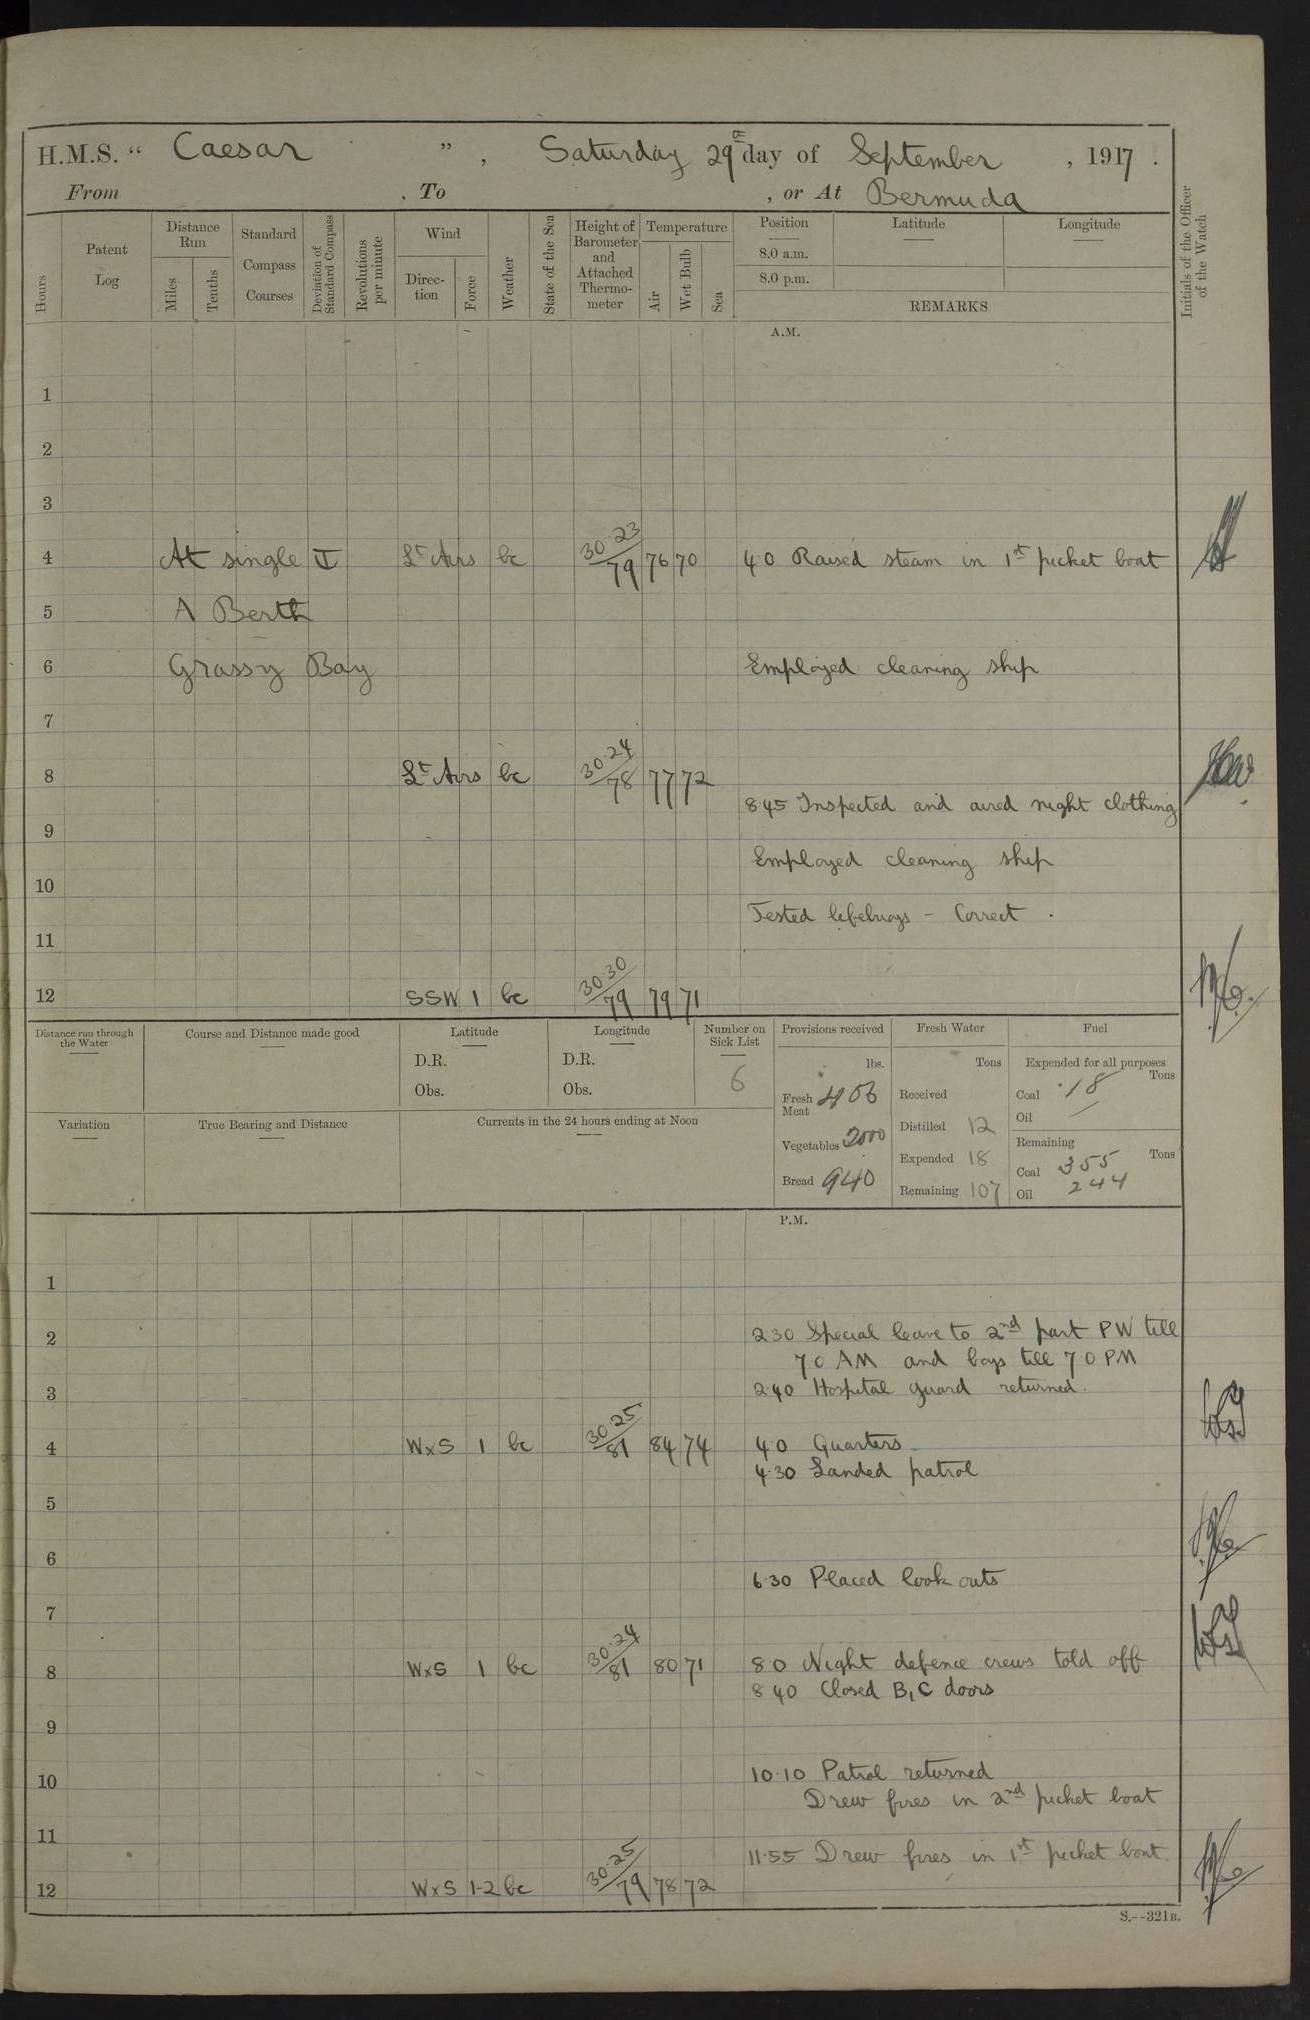 H.M.S. " Caesar " , Saturday 29th day of September , 1917 .
From , To , or At Bermuda
Hours
Patent Log
Distance Run
Miles
Tenths
Standard Compass Courses
Deviation of Standard Compass
Revolutions per minute
Wind
Direction
Force
Weather
State of the Sea
Height of Barometer and Attached Thermometer
Temperature
Air
Wet Bulb
Sea
Position
8.0 a.m.
8.0 p.m.
Latitude
Longitude
REMARKS
Initials of the Officer of the Watch
A.M.
1
2
3
4 At single Lt Airs bc 30.23/79 76 70 4 0 Raised steam in 1st picket boat
5 A Berth
6 Grassy Bay Employed cleaning ship
7
8 Lt Airs bc 30.24/78 77 72
8 45 Inspected and aired night clothing
9
Employed cleaning ship
10
Tested lifebuoys - Correct .
11
12 SSW 1 bc 30.30/79 79 71
Distance run through the Water
Course and Distance made good
Latitude
D.R.
Obs.
Longitude
D.R.
Obs.
Number on Sick List
6
Provisions received
lbs.
Fresh Meat 406
Vegetables 2000
Bread 940
Fresh Water
Tons
Received
Distilled 12
Expended 18
Remaining 107
Fuel
Expended for all purposes
Tons
Coal 18
Oil /
Remaining
Tons
Coal 355
Oil 244
Variation
True Bearing and Distance
Currents in the 24 hours ending at Noon
P.M.
1
2 2 30 Special leave to 2nd part PW till
7 0 AM and boys till 7 0 PM
3 2.40 Hospital guard returned.
4 WxS 1 bc 30.25/81 84 74 4.0 Quarters
4.30 Landed patrol
5
6
6.30 Placed look outs
7
8 WxS 1 bc 30.24/81 80 71 8 0 Night defence crews told off
8 40 Closed B, C doors
9
10 10.10 Patrol returned
Drew fires in 2nd picket boat
11
11.55 Drew fires in 1st picket boat.
12 WxS 1-2 bc 30.25/79 78 72
S.--321B.